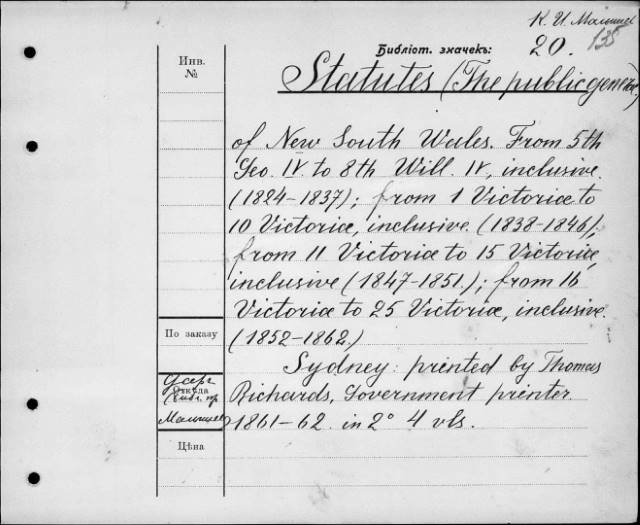 К. И. Машиней
Библіот. значекъ:
20. 138
Инв.
№
Statutes (The public general)
of New South Wales. From 5th
Geo. IV. to 8th Will. IV, inclusive.
(1824-1837); from 1 Victoriæ to
10 Victoriæ, inclusive. (1838-1846);
from 11 Victoriæ to 15 Victoriæ,
inclusive (1847-1851.); from 16
Victoriæ to 25 Victoriæ, inclusive.
(1852-1862.)
По заказу
Sydney: printed by Thomas
Откуда
Richards, Government printer
1861-62. in 2° 4 vls.
Цѣна